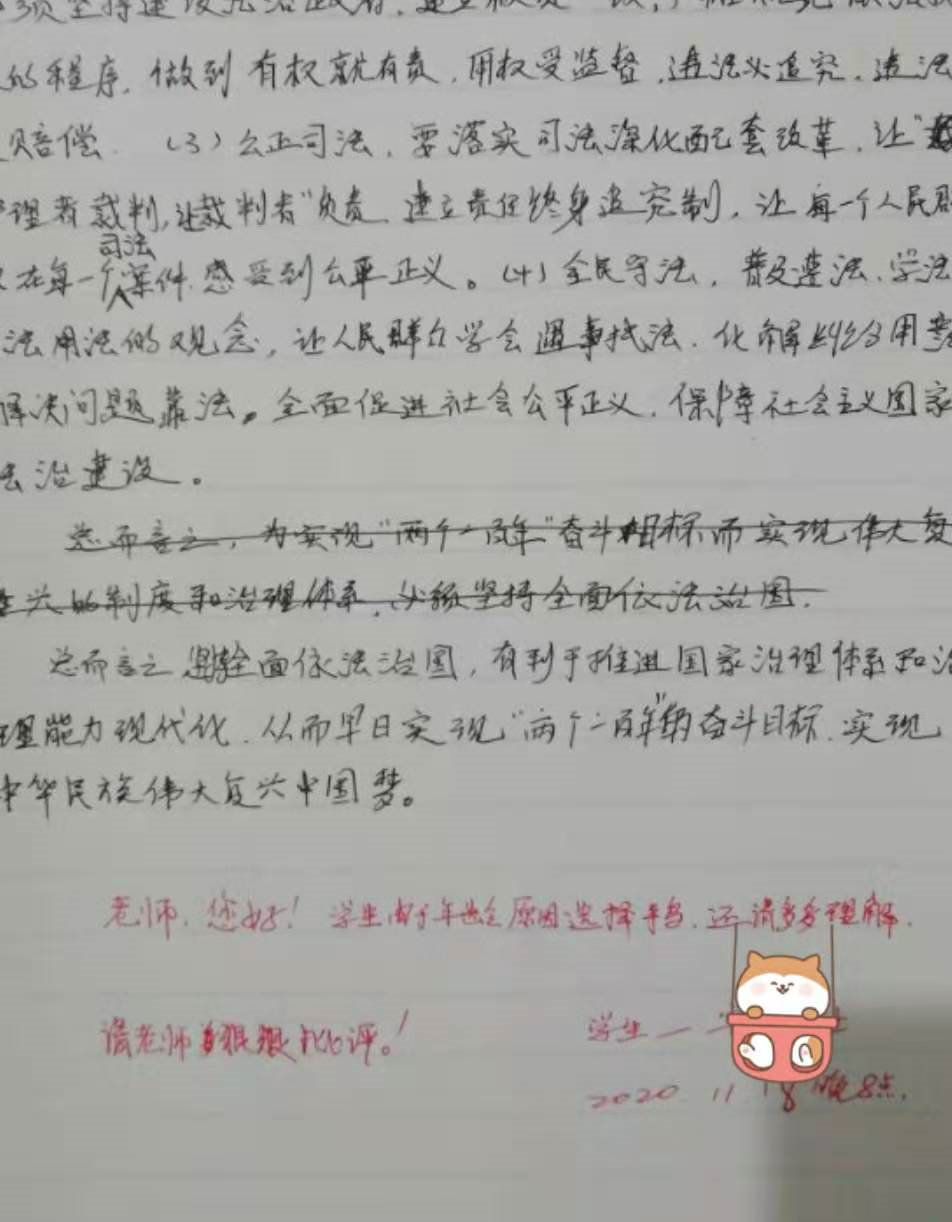 须坚持建设法治政府，建立权责一致，
的程序，做到有权就有责，用权受监督，违法必追究，违法
赔偿。（3）公正司法，要落实司法深化配套改革，让"
理者裁判，让裁判者"负责，建立责任终身追究制，让每一个人民群
司法
在每一个案件感受到公平正义。（4）全民守法，普及遵法、学法
法用法的观念，让人民群众学会遇事找法、化解纠纷用
解决问题靠法。全面促进社会公平正义，保障社会主义国家
法治建设。
总而言之，为实现"两个一百年"奋斗目标而实现伟大复
兴的制度和治理体系，必须坚持全面依法治国。
总而言之，全面依法治国，有利于推进国家治理体系和治
理能力现代化，从而早日实现"两个一百年"的奋斗目标，实现
中华民族伟大复兴中国梦。
老师，您好！学生由于原因选择手写，还请多多理解。
请老师狠狠批评！
学生
2020.11.18晚8点.